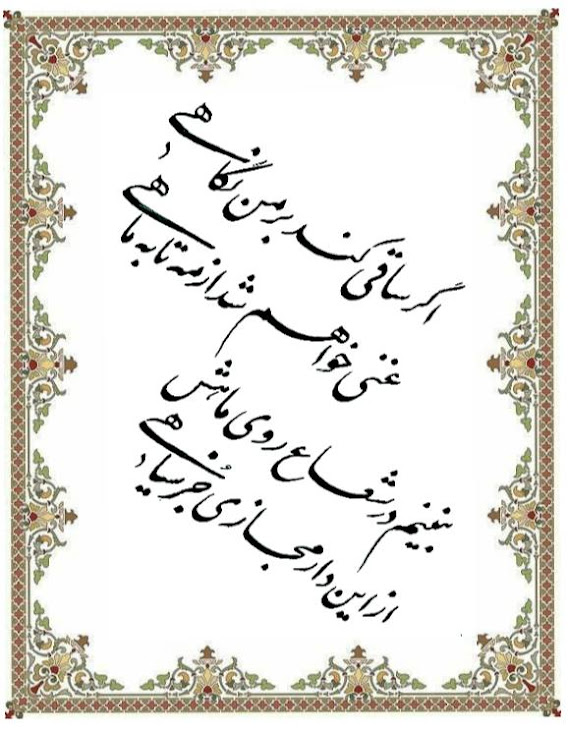 اگر ساقی کند بر من نگاهی
غنی خواهم شد از مه تا به ماهی
نبینم در شعاع روی ماهش
از این دار مجازی جز سیاهی